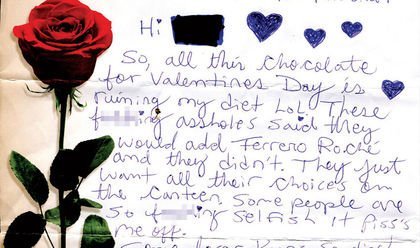 Hi
So, all this chocolate
for Valentines Day is
ruining my diet LoL These
f ing assholes said they
would add Ferrero Roché
and they didn't. They just
want all their choices on
the canteen. Some people are
So f ing selfish it Piss's
me off.